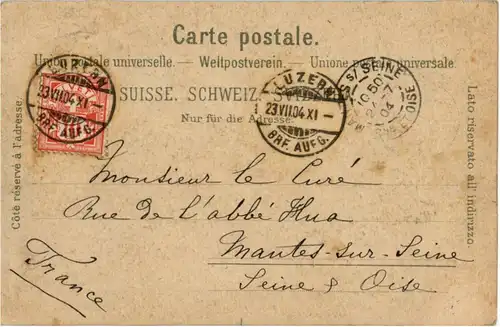 Carte postale.
Union postale universelle. — Weltpostverein. — Unione postale universale.
SUISSE. SCHWEIZ.
Nur für die Adresse.
Côté réservé à l'adresse.
Lato riservato all' indirizzo
LUZERN
23.VII.04.XI-
BRF. AUFG.
LUZERN
23.VII.04.XI-
BRF. AUFG.
S/SEINE
Monsieur le Curé
Rue de l'abbé Hua
Mantes-sur-Seine
Seine & Oise
France